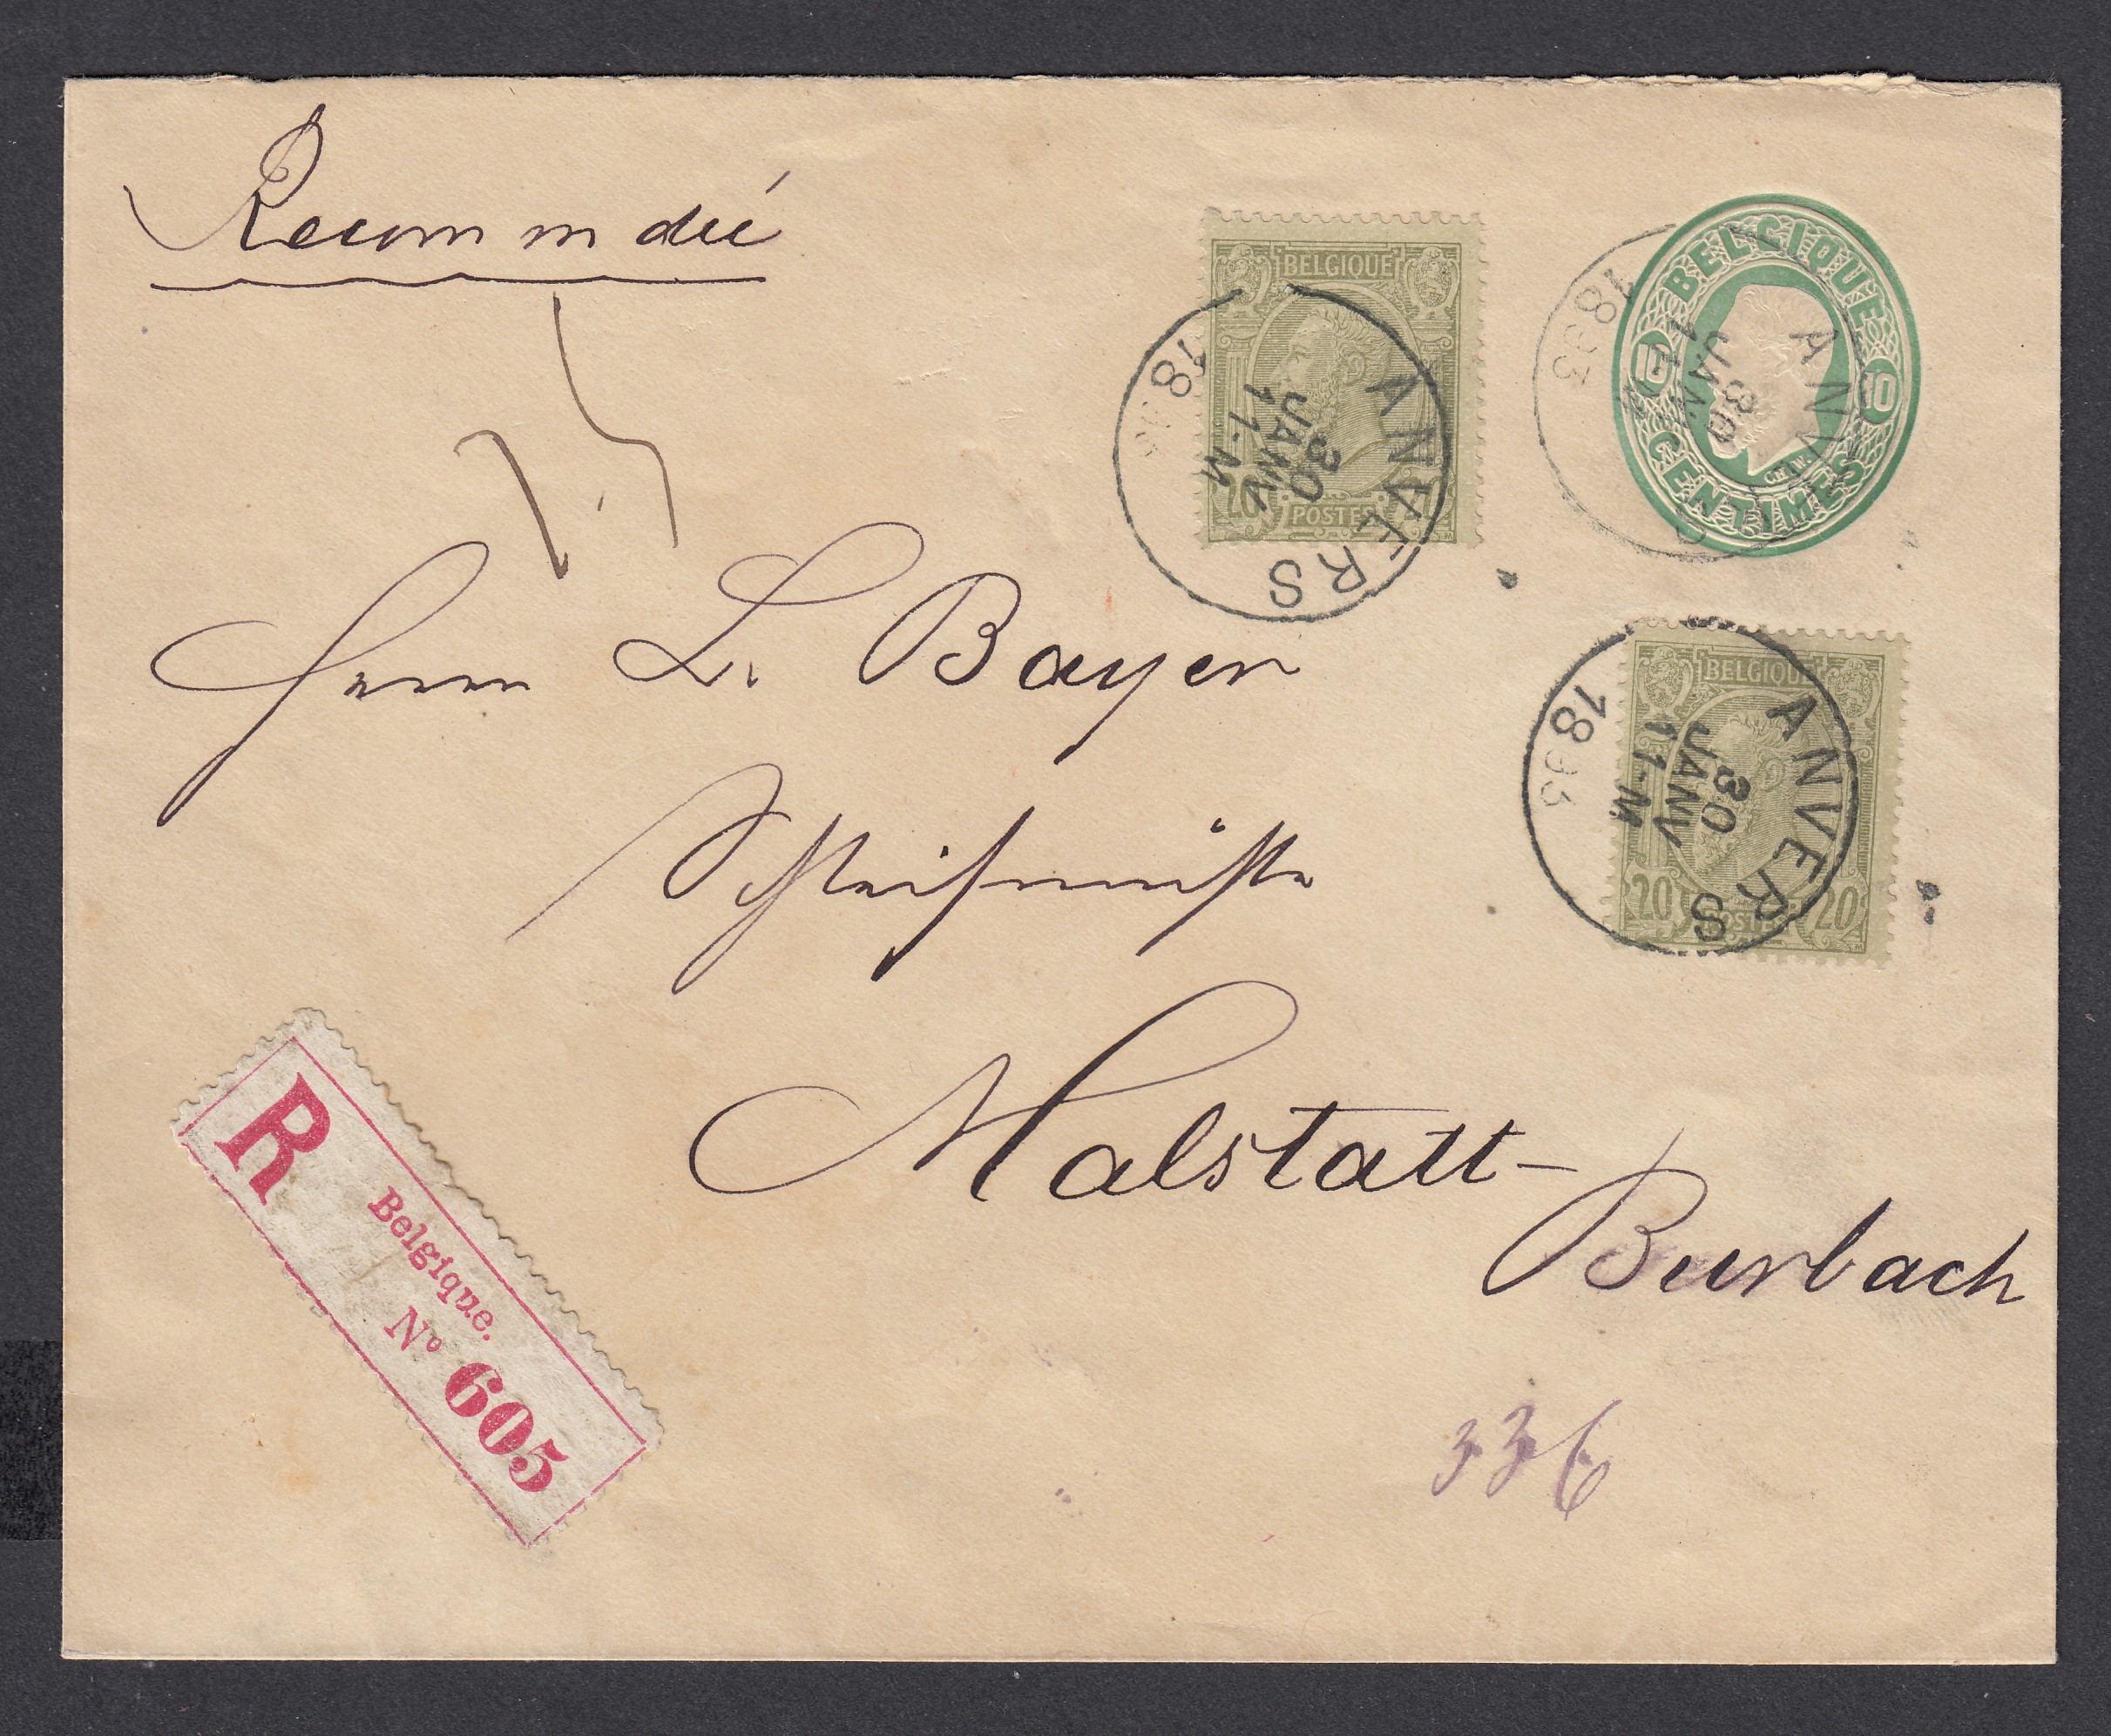 Recommandé
BELGIQUE
20 POSTES
ANVERS
30
JANV
11-M
18
BELGIQUE
10 10
CENTIMES
ANVERS
30
JANV
11-M
1893
Herrn L. Bayer
BELGIQUE
20 POSTES 20
ANVERS
30
JANV
11-M
18
Malstatt-
Burbach
R
Belgique.
Nº 605
336